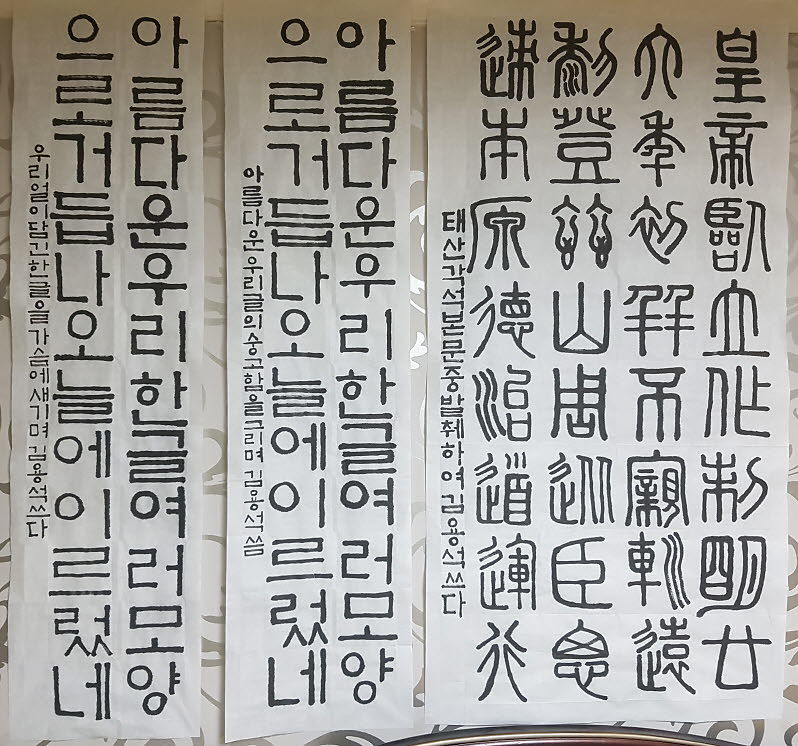 皇帝臨立作制明廿
六年初幷不寴巡遠
黎登茲山周巡臣思
迹本原德治道運行
태산각석본문중발췌하여김용석쓰다
아름다운우리한글여러모양
으로거듭나오늘에이르렀네
아름다운우리글의숭고함을그리며 김용석씀
아름다운우리한글여러모양
으로거듭나오늘에이르렀네
우리얼이담긴한글을가슴에새기며 김용석쓰다